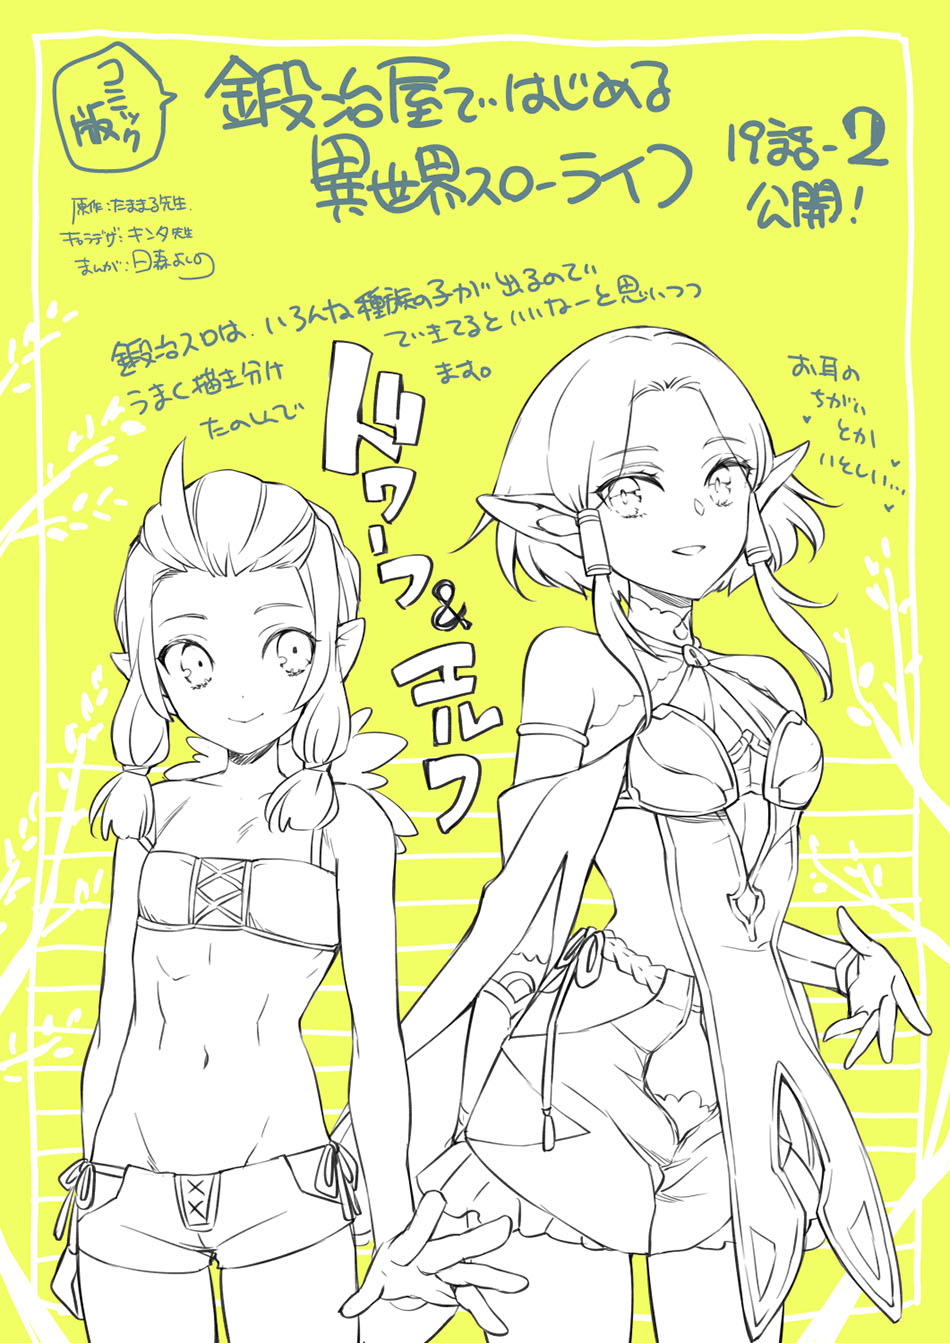 コミック
版
鍛冶屋ではじめる
異世界スローライフ
19話-2
公開!
原作:たままる先生.
キャラデザ:キンタ先生
まんが:日森よしの
鍛冶スロは、いろんな種族の子が出るので
うまく描き分け
できてるといいなーと思いつつ
たのしんで
ます。
ドワーフ
&
エルフ
お耳の
ちがい
とか
いそしい…